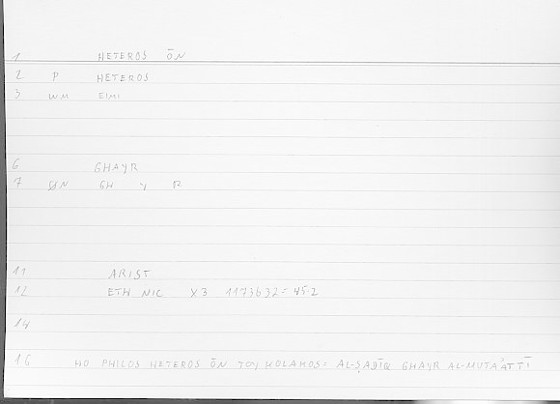 1 HETEROS ŌN
2 P HETEROS
3 WM EIMI
6 GHAYR
7 GH Y R
11 ARIST
12 ETH NIC X3 1173b32= 45.2
14
16 HO PHILOS HETEROS ŌN TOY KOLAKOS: AL-ṢADĪQ GHAYR